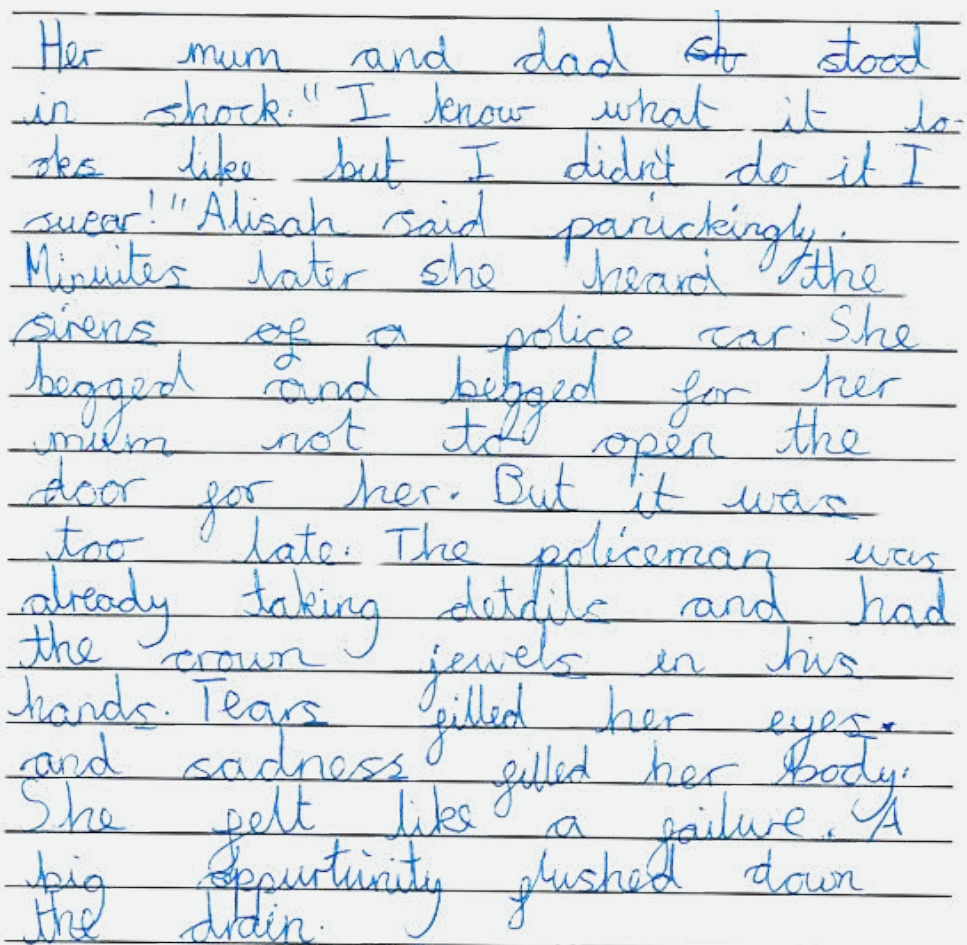 Her mum and dad sh stood
in shock. "I know what it lo-
oks like but I didn't do it I
swear!" Alisah said panickingly.
Minuites later she heard the
sirens of a police car. She
begged and begged for her
mum not to open the
door for her. But it was
too late. The policeman was
already taking details and had
the crown jewels in his
hands. Tears filled her eyes.
and sadness filled her body.
She felt like a failure. A
big oppurtiunity flushed down
the drain.